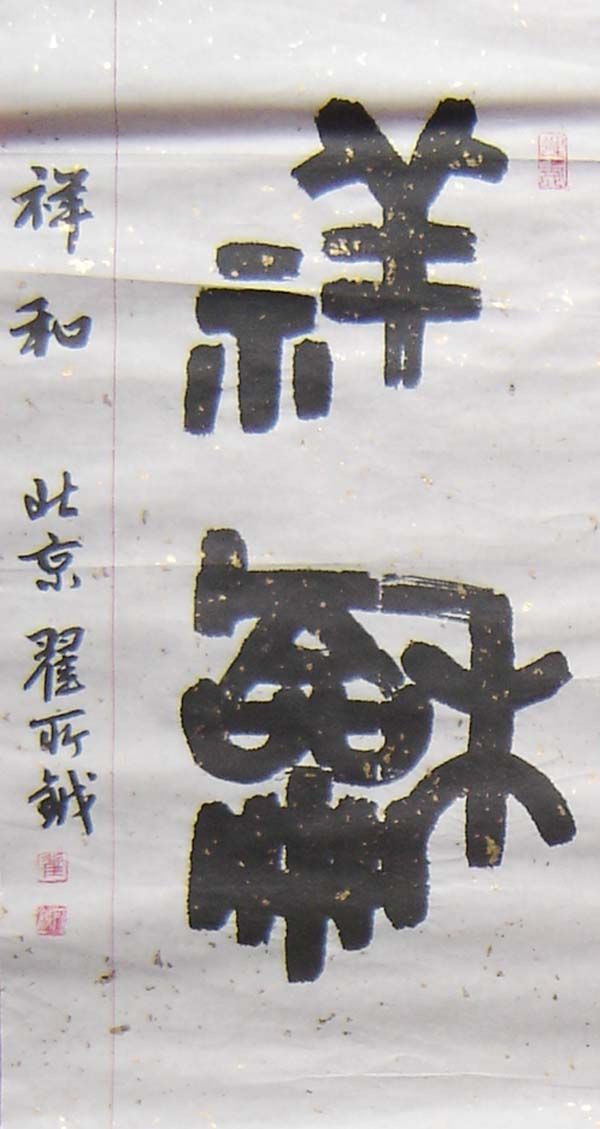 祥龢
祥和 北京 翟所鉞